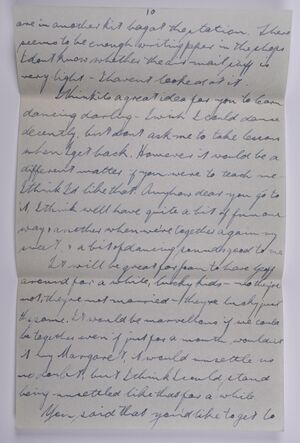 10
are in another kit bag at the station. There
seems to be enough writing paper in the shops
I dont know whether the air mail stuff is
very light - I havent looked at it.
I think its a great idea for you to learn
dancing darling - I wish I could dance
decently, but dont ask me to take lessons
when I get back. However it would be a
different matter if you were to teach me -
I think I'd like that. Anyhow dear you go to
it, I think we'll have quite a bit of fun one
way & another when we're together again my
& a bit of dancing sounds good to me
It will be great for to have
around for a while, lucky kids - no they're
not, they're not married - they're lucky just
the same. It would be marvellous if we could
be together even if just for a month, wouldn't
it my Margaret, it would unsettle us
no doubt, but I think I could stand
being unsettled like that for a while.
You said that you'd like to get to